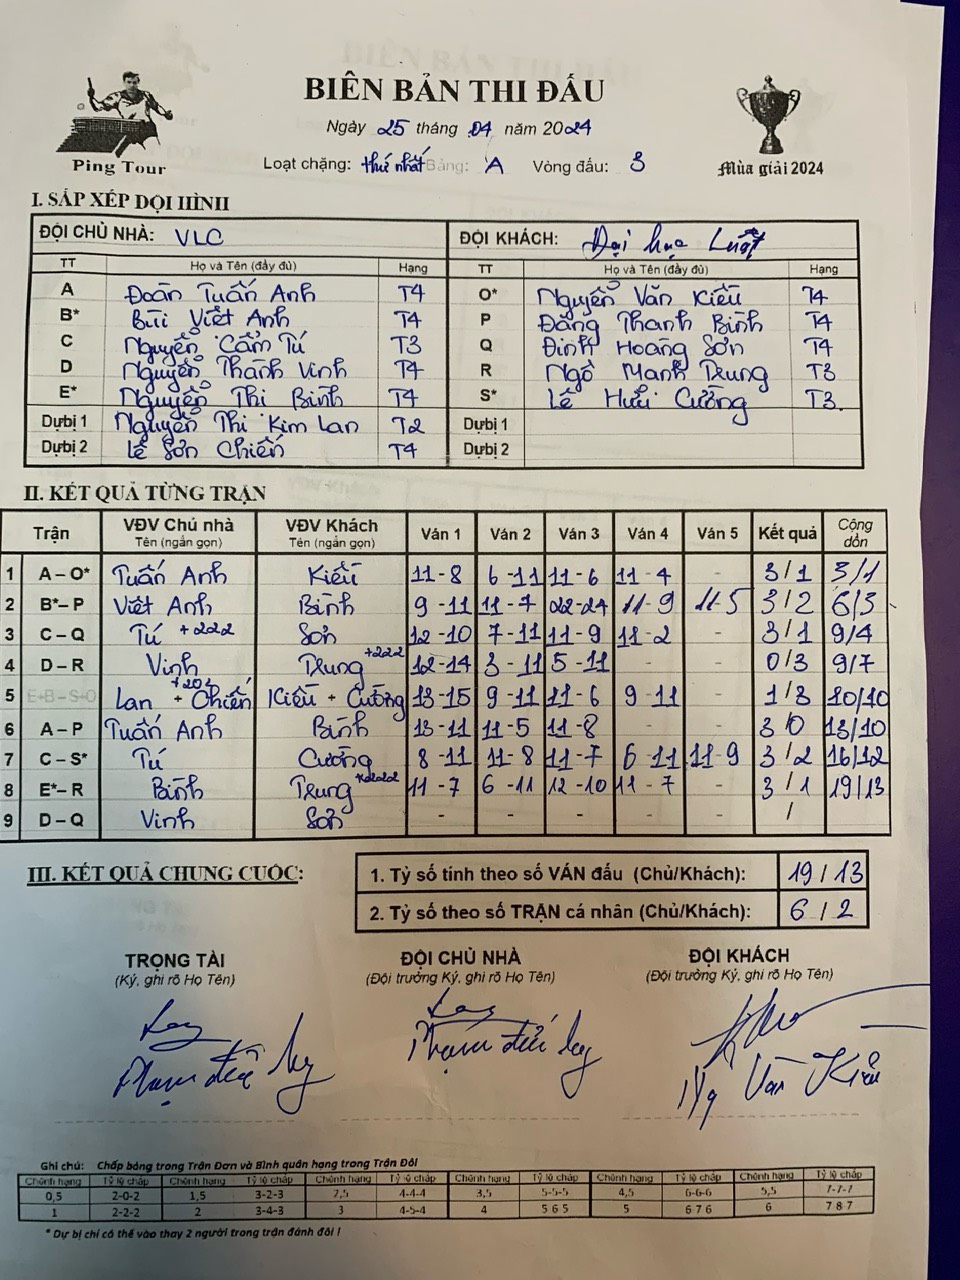 BIÊN BẢN THI ĐẤU
Ngày 25 tháng 04 năm 2024
Ping Tour
Loạt chặng: thứ nhất Bảng: A Vòng đấu: 3
Mùa giải 2024
I. SẮP XẾP ĐỘI HÌNH
ĐỘI CHỦ NHÀ: VLC ĐỘI KHÁCH: Đại học Luật
TT Họ và Tên (đầy đủ) Hạng TT Họ và Tên (đầy đủ) Hạng
A Đoàn Tuấn Anh T4 O* Nguyễn Văn Kiều T4
B* Bùi Việt Anh T4 P Đặng Thanh Bình T4
C Nguyễn Cẩm Tú T3 Q Đinh Hoàng Sơn T4
D Nguyễn Thành Vinh T4 R Ngô Mạnh Trung T3
E* Nguyễn Thị Bình T4 S* Lê Hữu Cường T3.
Dự bị 1 Nguyễn Thị Kim Lan T2 Dự bị 1
Dự bị 2 Lê Sơn Chiến T4 Dự bị 2
II. KẾT QUẢ TỪNG TRẬN
Trận VĐV Chủ nhà Tên (ngắn gọn) VĐV Khách Tên (ngắn gọn) Ván 1 Ván 2 Ván 3 Ván 4 Ván 5 Kết quả Cộng dồn
1 A – O* Tuấn Anh Kiều 11-8 6-11 11-6 11-4 - 3/1 3/1
2 B* – P Việt Anh Bình 9-11 11-7 22-24 11-9 11-5 3/2 6/3
3 C – Q Tú +222 Sơn 12-10 7-11 11-9 11-2 - 3/1 9/4
4 D – R Vinh Trung +222 12-14 3-11 5-11 - - 0/3 9/7
5 E+B – S+O Lan + Chiến +202 Kiều + Cường 13-15 9-11 11-6 9-11 - 1/3 10/10
6 A – P Tuấn Anh Bình 13-11 11-5 11-8 - - 3 0 13/10
7 C – S* Tú Cường 8-11 11-8 11-7 6-11 11-9 3/2 16/12
8 E* – R Bình Trung +222 11-7 6-11 12-10 11-7 - 3/1 19/13
9 D – Q Vinh Sơn - - - - - /
III. KẾT QUẢ CHUNG CUỘC:
1. Tỷ số tính theo số VÁN đấu (Chủ/Khách): 19/13
2. Tỷ số theo số TRẬN cá nhân (Chủ/Khách): 6/2
TRỌNG TÀI ĐỘI CHỦ NHÀ ĐỘI KHÁCH
(Ký, ghi rõ Họ Tên) (Đội trưởng Ký, ghi rõ Họ Tên) (Đội trưởng Ký, ghi rõ Họ Tên)
Ghi chú: Chấp bóng trong Trận Đơn và Bình quân hạng trong Trận Đôi
Chênh hạng Tỷ lệ chấp Chênh hạng Tỷ lệ chấp Chênh hạng Tỷ lệ chấp Chênh hạng Tỷ lệ chấp Chênh hạng Tỷ lệ chấp Chênh hạng Tỷ lệ chấp
0,5 2-0-2 1,5 3-2-3 2,5 4-4-4 3,5 5-5-5 4,5 6-6-6 5,5 7-7-7
1 2-2-2 2 3-4-3 3 4-5-4 4 5 6 5 5 6 7 6 6 7 8 7
* Dự bị chỉ có thể vào thay 2 người trong trận đánh đôi !